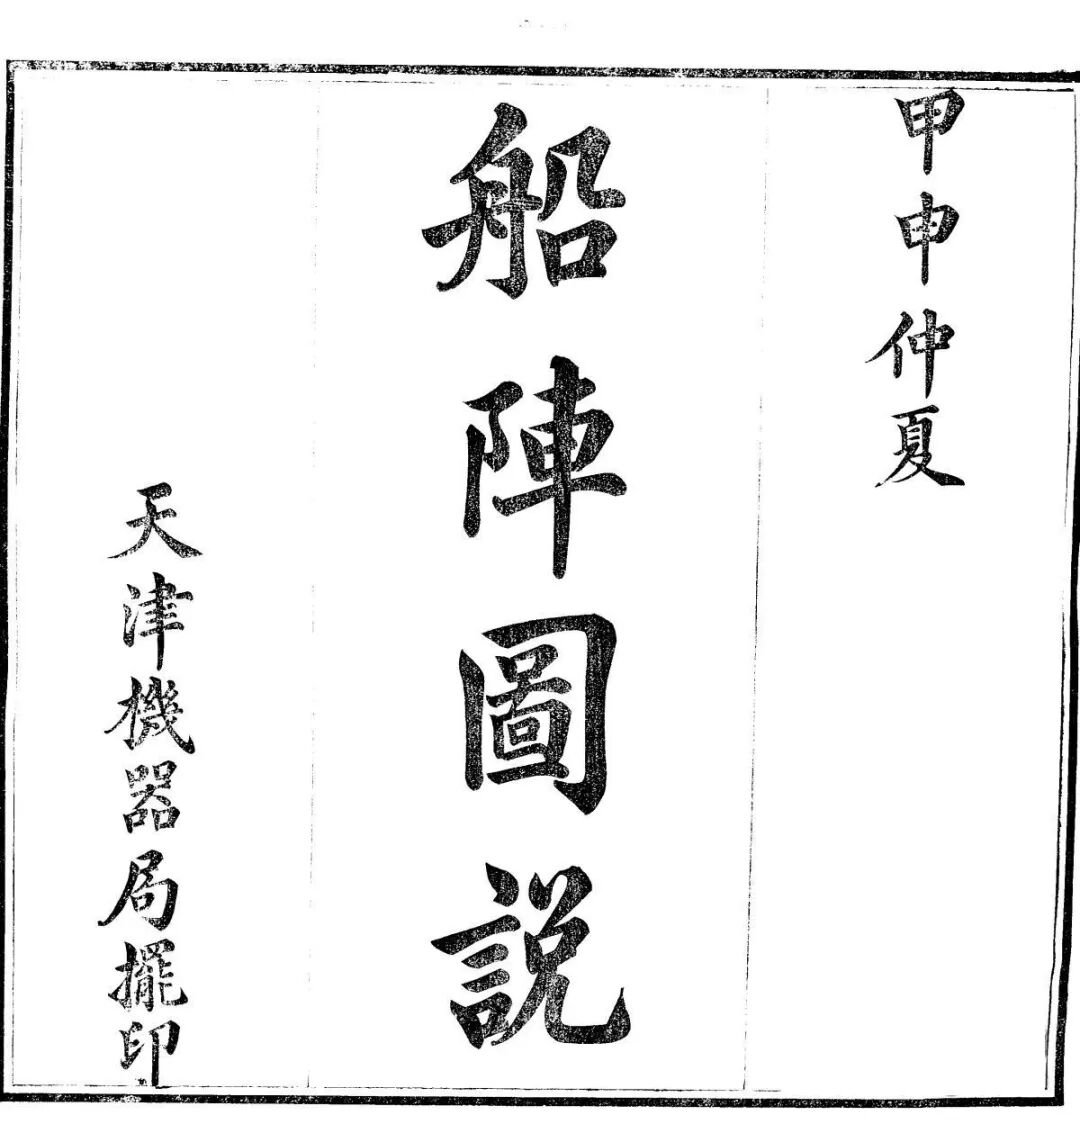 甲申仲夏
船陣圖說
天津機器局擺印